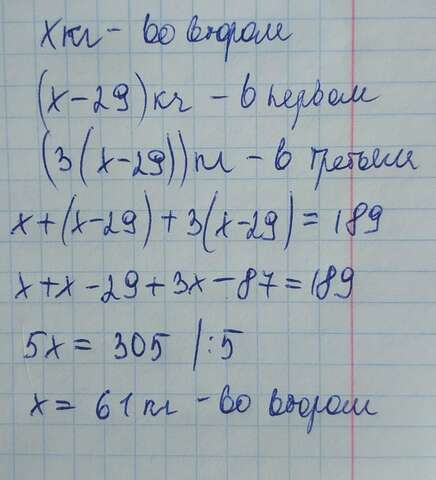 x кг - во втором
(x-29) кг - в первом
(3(x-29)) кг - в третьем
x+(x-29)+3(x-29)=189
x+x-29+3x-87=189
5x=305 /:5
x=61 кг - во втором